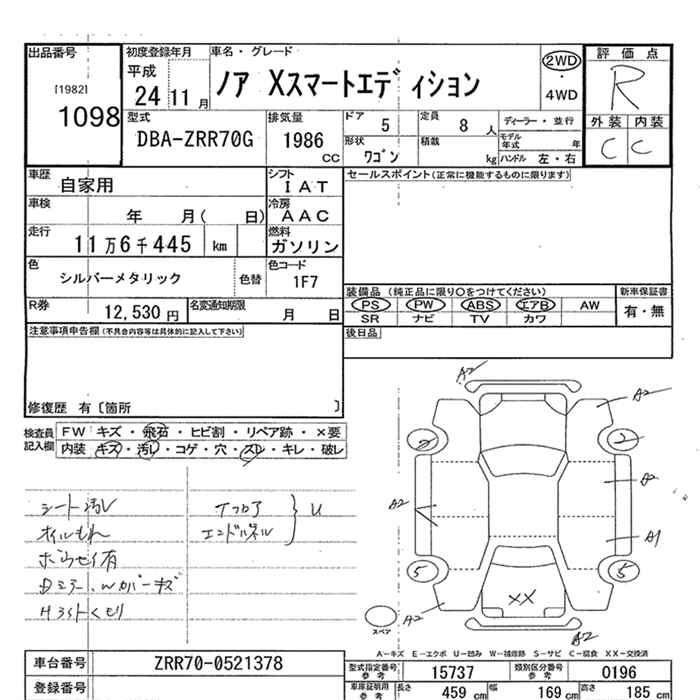 出品番号
[1982]
1098
初度登録年月
平成
24 11 月
車名・グレード
ノア Xスマートエディション
2WD
・
4WD
評価点
R
外装 内装
C C
型式
DBA-ZRR70G
排気量
1986
CC
ドア 5
形状
ワゴン
定員 8 人
積載 kg
ディーラー・並行
モデル年式 年
ハンドル 左・右
車歴 自家用
シフト
IAT
車検 年 月( 日)
冷房
AAC
走行 11万6千445 km
燃料
ガソリン
色
シルバーメタリック
色替
色コード
1F7
R券 12,530 円
名変通知期限
月 日
セールスポイント(正常に機能するものに限ります)
装備品 (純正品に限り〇をつけてください)
PS PW ABS エアB AW
SR ナビ TV カワ
新車保証書
有・無
後日品
注意事項申告欄(不具合内容等は具体的に記入して下さい)
修復歴 有〔箇所 〕
検査員記入欄
FW キズ・飛石・ヒビ割・リペア跡・×要
内装 キズ・汚レ・コゲ・穴・スレ・キレ・破レ
シート汚レ
オイルもれ
H ライトくもり
フロア
エンドパネル
U
A2
A2
A2
A2
A1
A2
A2
2
2
5
5
XX
スペア
A-キズ E-エクボ U-凹み W-補修跡 S-サビ C-腐食 XX-交換済
車台番号 ZRR70-0521378
登録番号
型式指定番号
参考
15737
類別区分番号
参考
0196
車庫証明用
参考
長さ 459 cm
幅 169 cm
高さ 185 cm